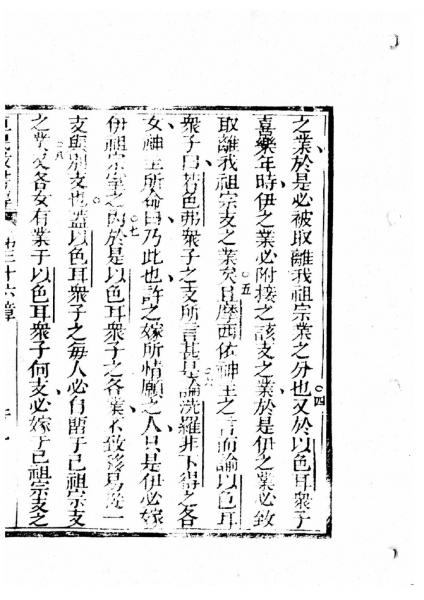 之業於是必被取離我祖宗業之分也○四又於以色耳衆子
喜樂年時伊之業必附接之該支之業於是伊之業必致
取離我祖宗支之業矣○五且摩西依神主之言而諭以色耳
衆子曰若色弗衆子之支所言甚是○六論洗羅非卜得之各
女神主所命曰乃此也許之嫁所情願之人只是伊必嫁
伊祖宗室之內○七於是以色耳衆子之各業不致移易從一
支與別支也蓋以色耳衆子之每人必自留于己祖宗支
之業○八又各女有業于以色耳衆子何支必嫁于己祖宗支之
第三十六章